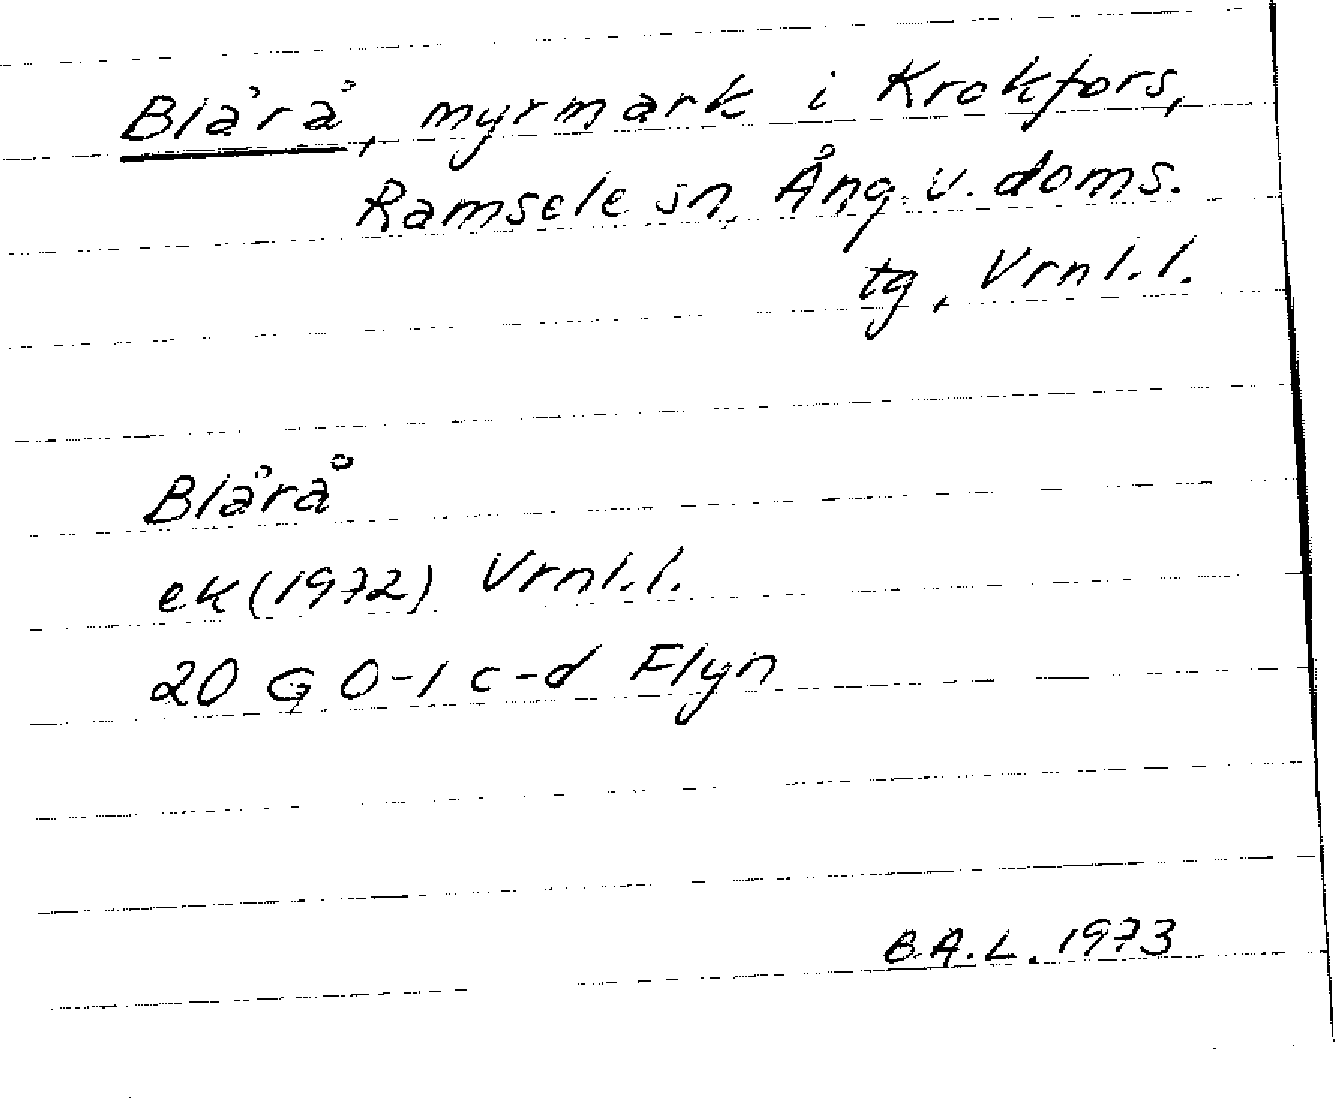 Blårå, myrmark i Krokfors,
Ramsele sn, Ång. v. doms.
tg, Vrnl.l.
Blårå
ek (1972) Vrnl.l.
20 G 0-1 c-d Flyn
B.A.L. 1973